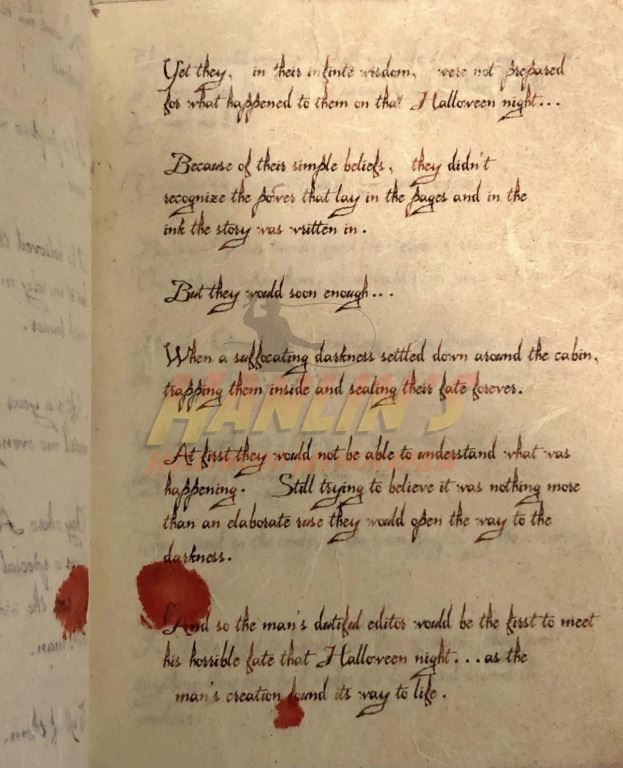 Yet they, in their infinte wisdom, were not prepared
for what happened to them on that Halloween night...
Because of their simple beliefs, they didn't
recognize the power that lay in the pages and in the
ink the story was written in.
But they would soon enough...
When a suffocating darkness settled down around the cabin,
trapping them inside and sealing their fate forever.
HANLIN'S
At first they would not be able to understand what was
happening. Still trying to believe it was nothing more
than an elaborate ruse they would open the way to the
darkness.
And so the man's dutiful editor would be the first to meet
his horrible fate that Halloween night...as the
man's creation found its way to life.